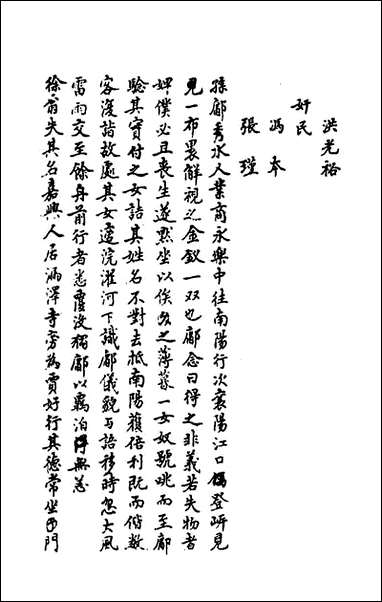 洪光裕
奸民
馮本
張瑾
孫鄺秀水人業商永樂中往南陽行次襄陽江口偶登岍見
見一布裹解視之金釵一双也鄺念曰得之非義若失物者
婢僕必且喪生遂默坐以俟久之薄暮一女奴號咷而至鄺
驗其實付之女詰其姓名不對去抵南陽獲倍利既而偕数
客復詣故處其女邃浣濯河下識鄺儀貌与語移時忽大風
雷雨交至餘舟前行者悉覆没獨鄺以覊泊得無恙
徐翁失其名嘉興人居涌澤寺旁為賈好行其德常坐西門